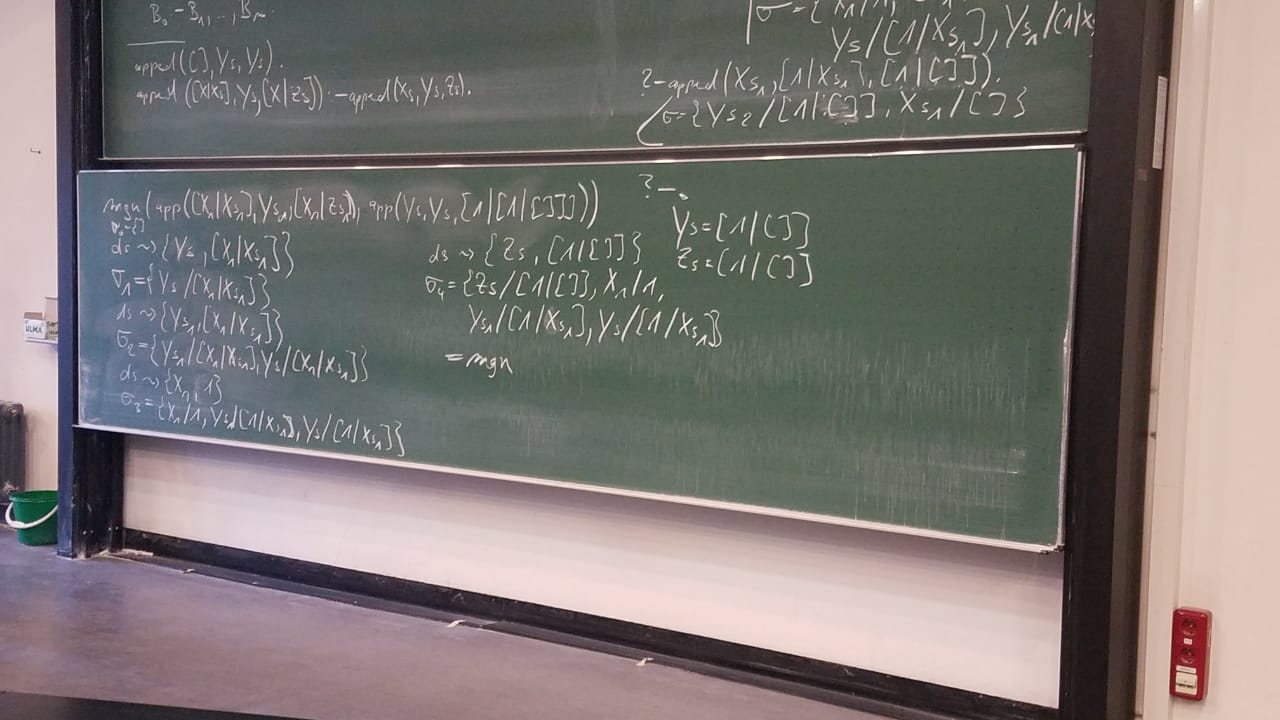 B₀:-B₁,..,Bₘ.
append([],Ys,Ys).
append([X|Xs],Ys,[X|Zs]):-append(Xs,Ys,Zs).
σ={X1/1,
Ys/[1|Xs₁],Ys₁/[1|Xs
?-append(Xs₁,[1|Xs₁],[1|[]]).
σ={Ys₂/[1|[]],Xs₁/[]}
mgu(app([X₁|Xs₁],Ys₁,[X₁|Zs₁]),app(Ys,Ys,[1|[1|[]]]))
σ₀={}
ds ⤳ {Ys,[X₁|Xs₁]}
σ₁={Ys/[X₁|Xs₁]}
ds ⤳ {Ys₁,[X₁|Xs₁]}
σ₂={Ys₁/[X₁|Xs₁],Ys/[X₁|Xs₁]}
ds ⤳ {X₁,1}
σ₃={X₁/1,Ys₁/[1|Xs₁],Ys/[1|Xs₁]}
ds ⤳ {Zs,[1|[]]}
σ₄={Zs/[1|[]],X₁/1,
Ys₁/[1|Xs₁],Ys/[1/Xs₁]}
=mgu
?-.
Ys=[1|[]]
Zs=[1|[]]
ULMA